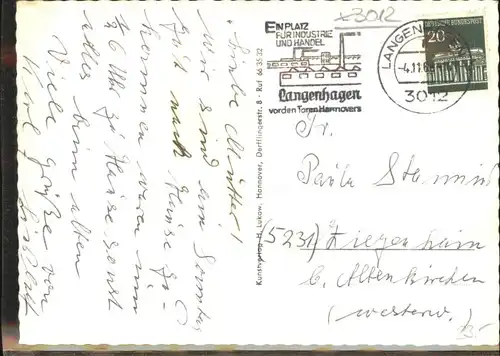 Liebe Mutter!
wir sind am Sonntag
gut nach Hause ge-
kommen waren um
6 Uhr zu Hause sonst
alles beim alten
Viele Grüße von
Kunstverlag H. Lukow, Hannover, Derfflingerstr. 8 · Ruf 66 35 32
3012
EIN PLATZ
FÜR INDUSTRIE
UND HANDEL
Langenhagen
vor den Toren Hannovers
LANGEN
-4.11.6
3012
DEUTSCHE BUNDESPOST
20
Fr.
Paula
(5231) Ziegenhain
b. Altenkirchen
(Westerw.)